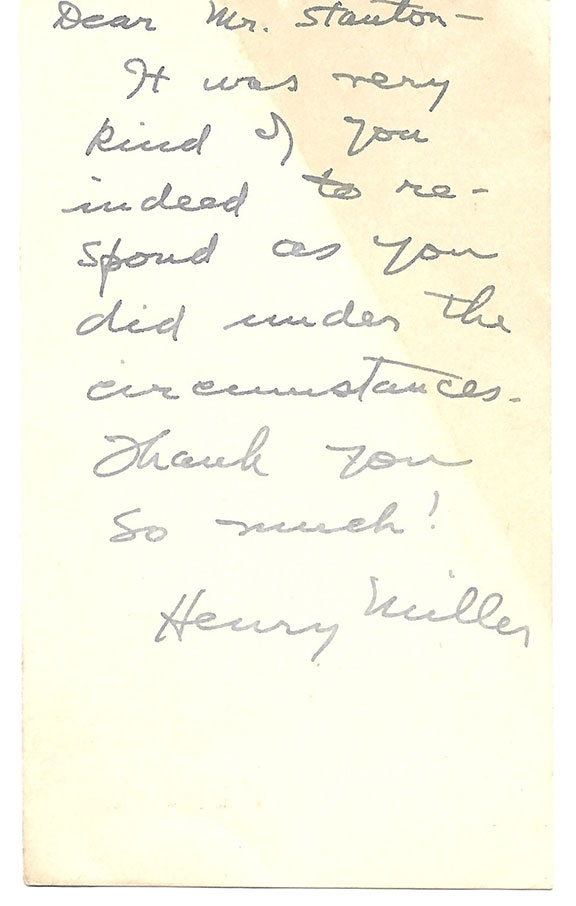 Dear Mr. Stanton –
It was very
kind of you
indeed to re-
spond as you
did under the
circumstances.
Thank you
so much!
Henry Miller